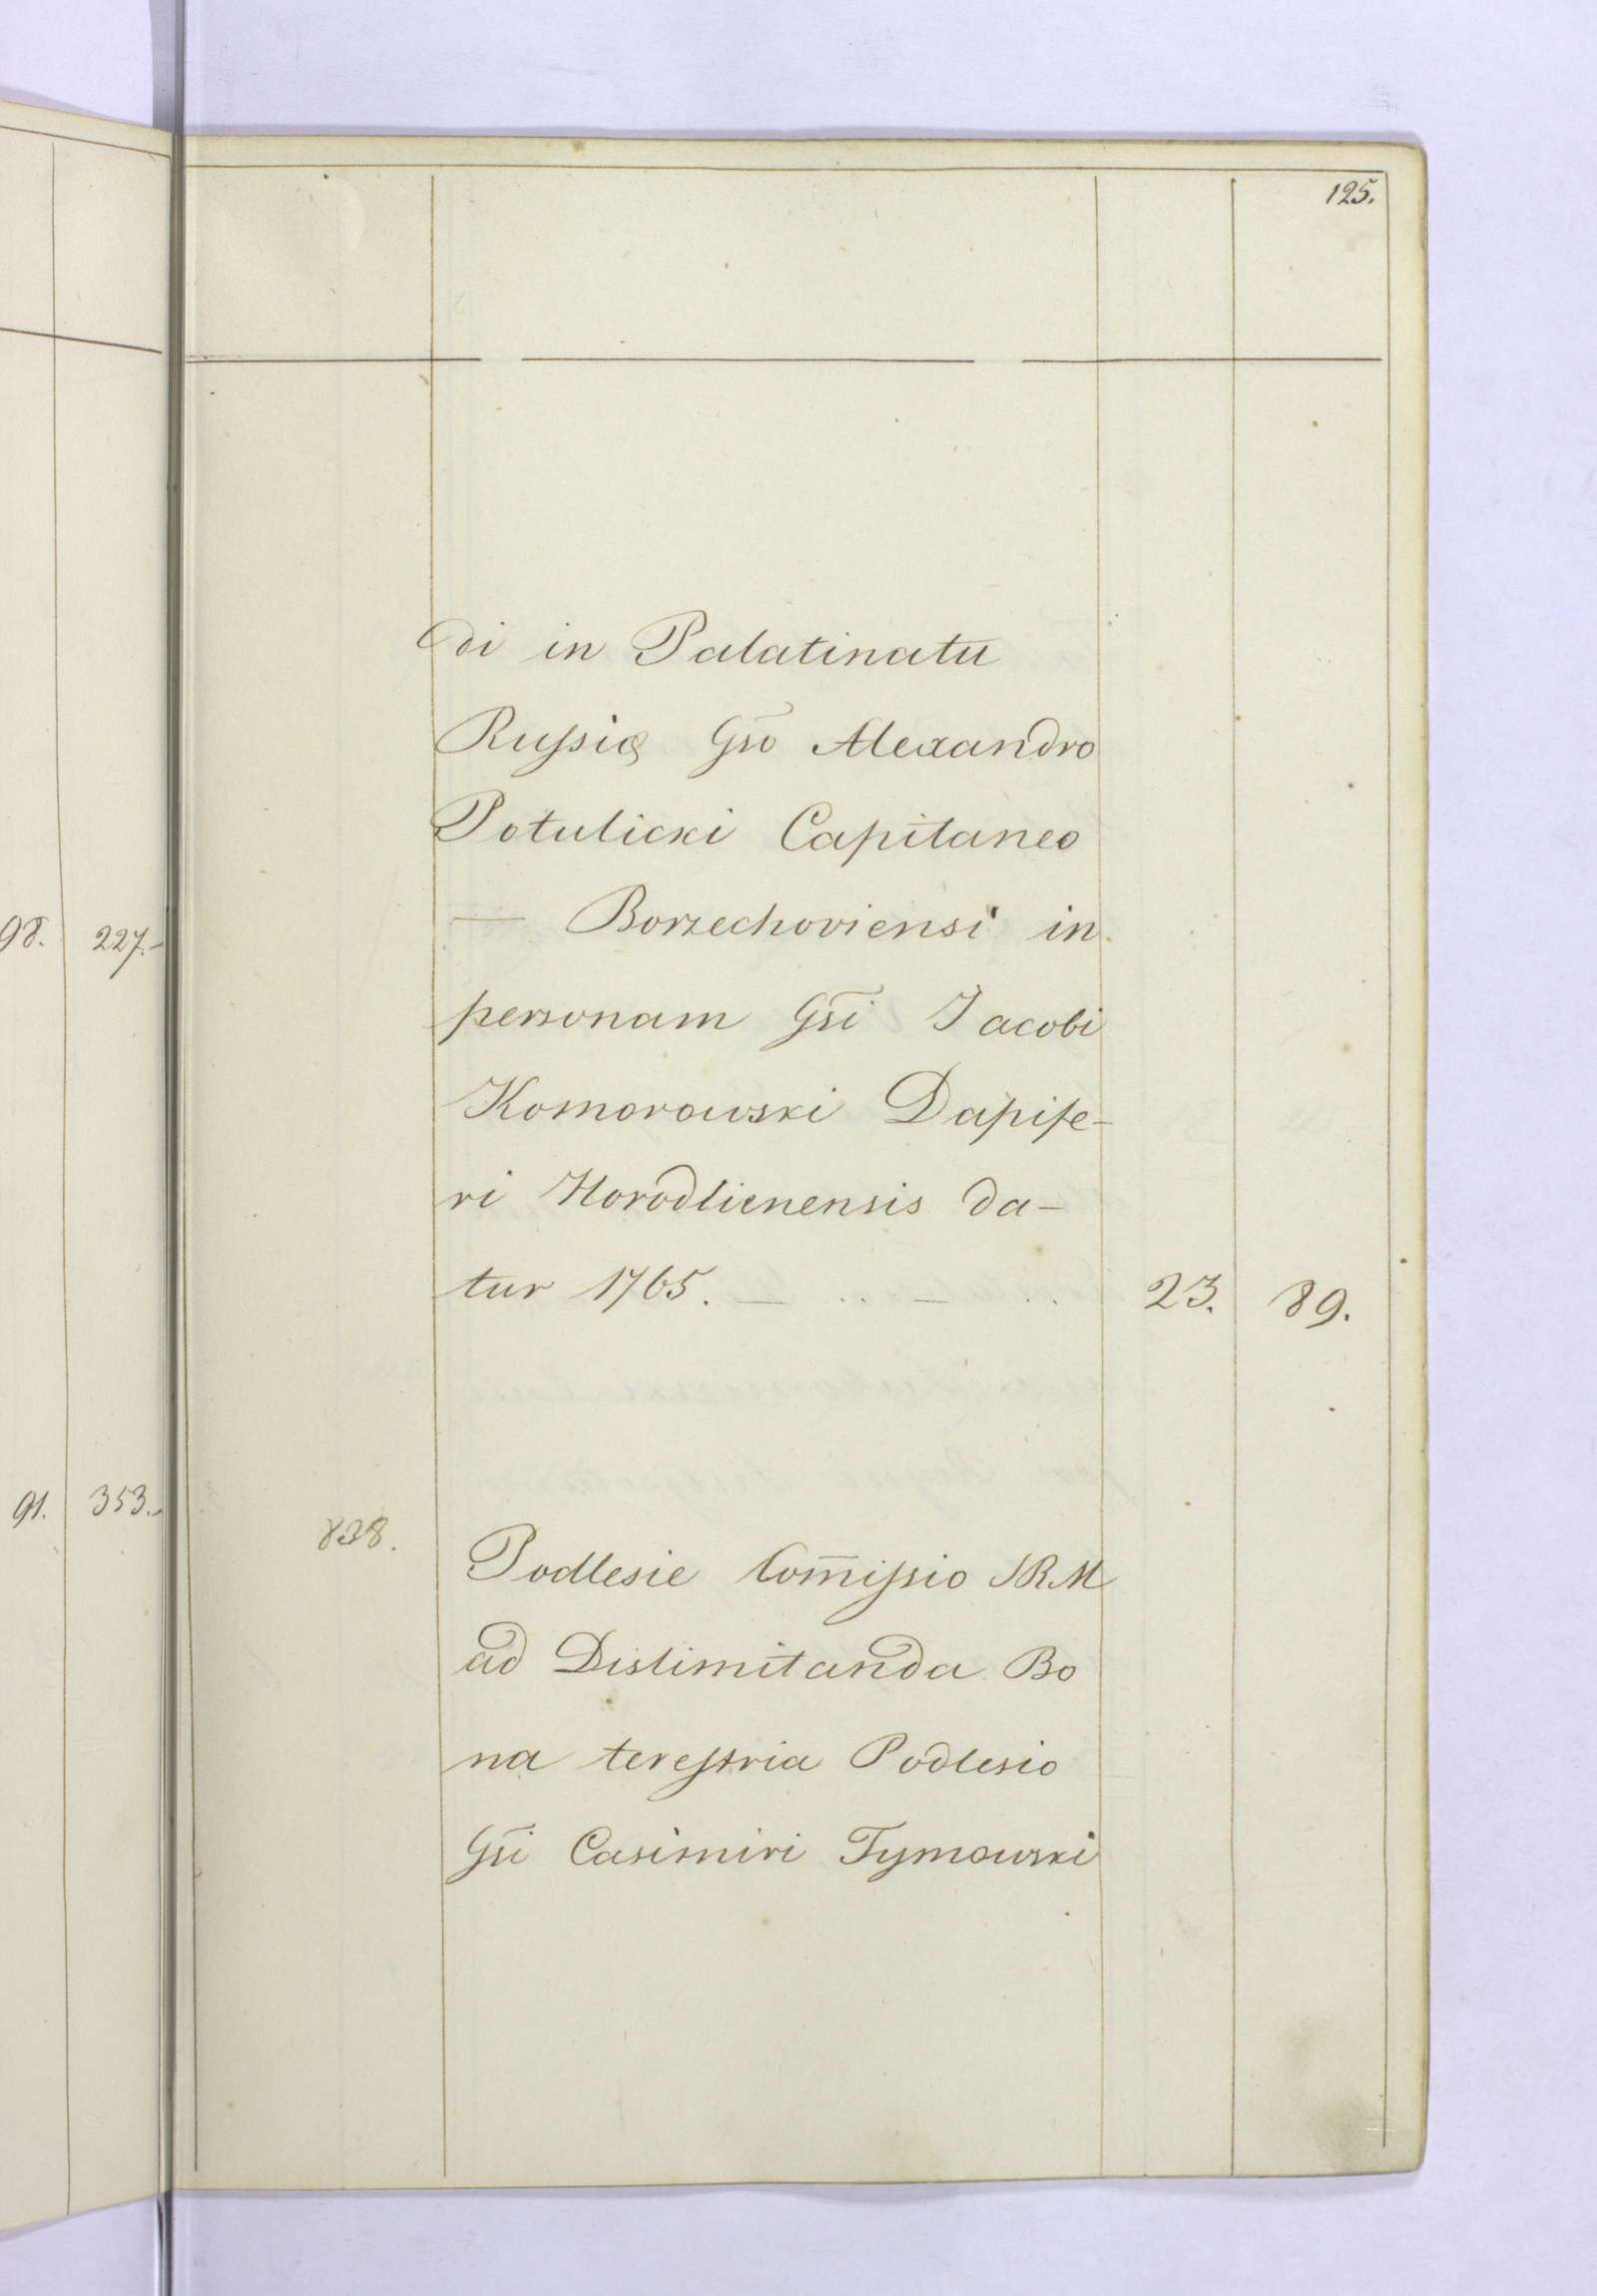 125.
di in Palatinatu
Russię Gso Alexandro
Potulicki Capitaneo
— Borzechoviensi in
98. 227.-
personam Gsi Jacobi
Komorowski Dapife-
ri Horodlienensis da-
tur 1765. — .. — .. 23. 89.
91. 353.-
838.
Podlesie Com̄issio SRM
ad Dislimitanda Bo
na terestria Podlesio
Gsi Casimiri Tymowski